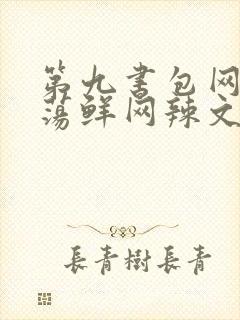 第九书包网
荡鲜网辣文
長青樹長青